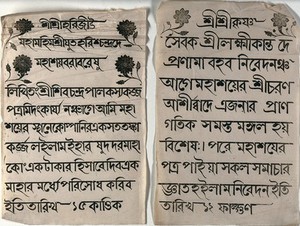 শ্রীশ্রীহরিজীউ
মহামহিম শ্রীযুত হরিশ্চন্দ্র দে
মহাশয় বরাবরেষু
লিখিতং শ্রীশিবচন্দ্র পাল কস্য কজ্জ
পত্রমিদং কার্য্য নঞ্চাগে আমি মহা
শয়ের স্থানে কোম্পানির একসত তঙ্কা
কজ্জ লইলাম ইহার যুদ দরমাহা
কো: একটাকার হিসাবে দিব এক
মাহার মর্ধ্যে পরিসোধ করিব
ইতি তারিখ ১৫ কার্ত্তিক
শ্রীশ্রীকৃষ্ণঃ
সেবক শ্রীলক্ষ্মীকান্ত দে
প্রণামা বহব নিবেদনঞ্চ
আগে মহাশয়ের শ্রীচরণ
আশীর্বাদে এজনার প্রাণ
গতিক সমস্ত মঙ্গল হয়
বিশেষঃ। পরে মহাশয়ের
পত্র পাইয়া সকল সমাচার
জ্ঞাত হইলাম নিবেদন ইতি
তারিখ ১২ ফাল্গুণ